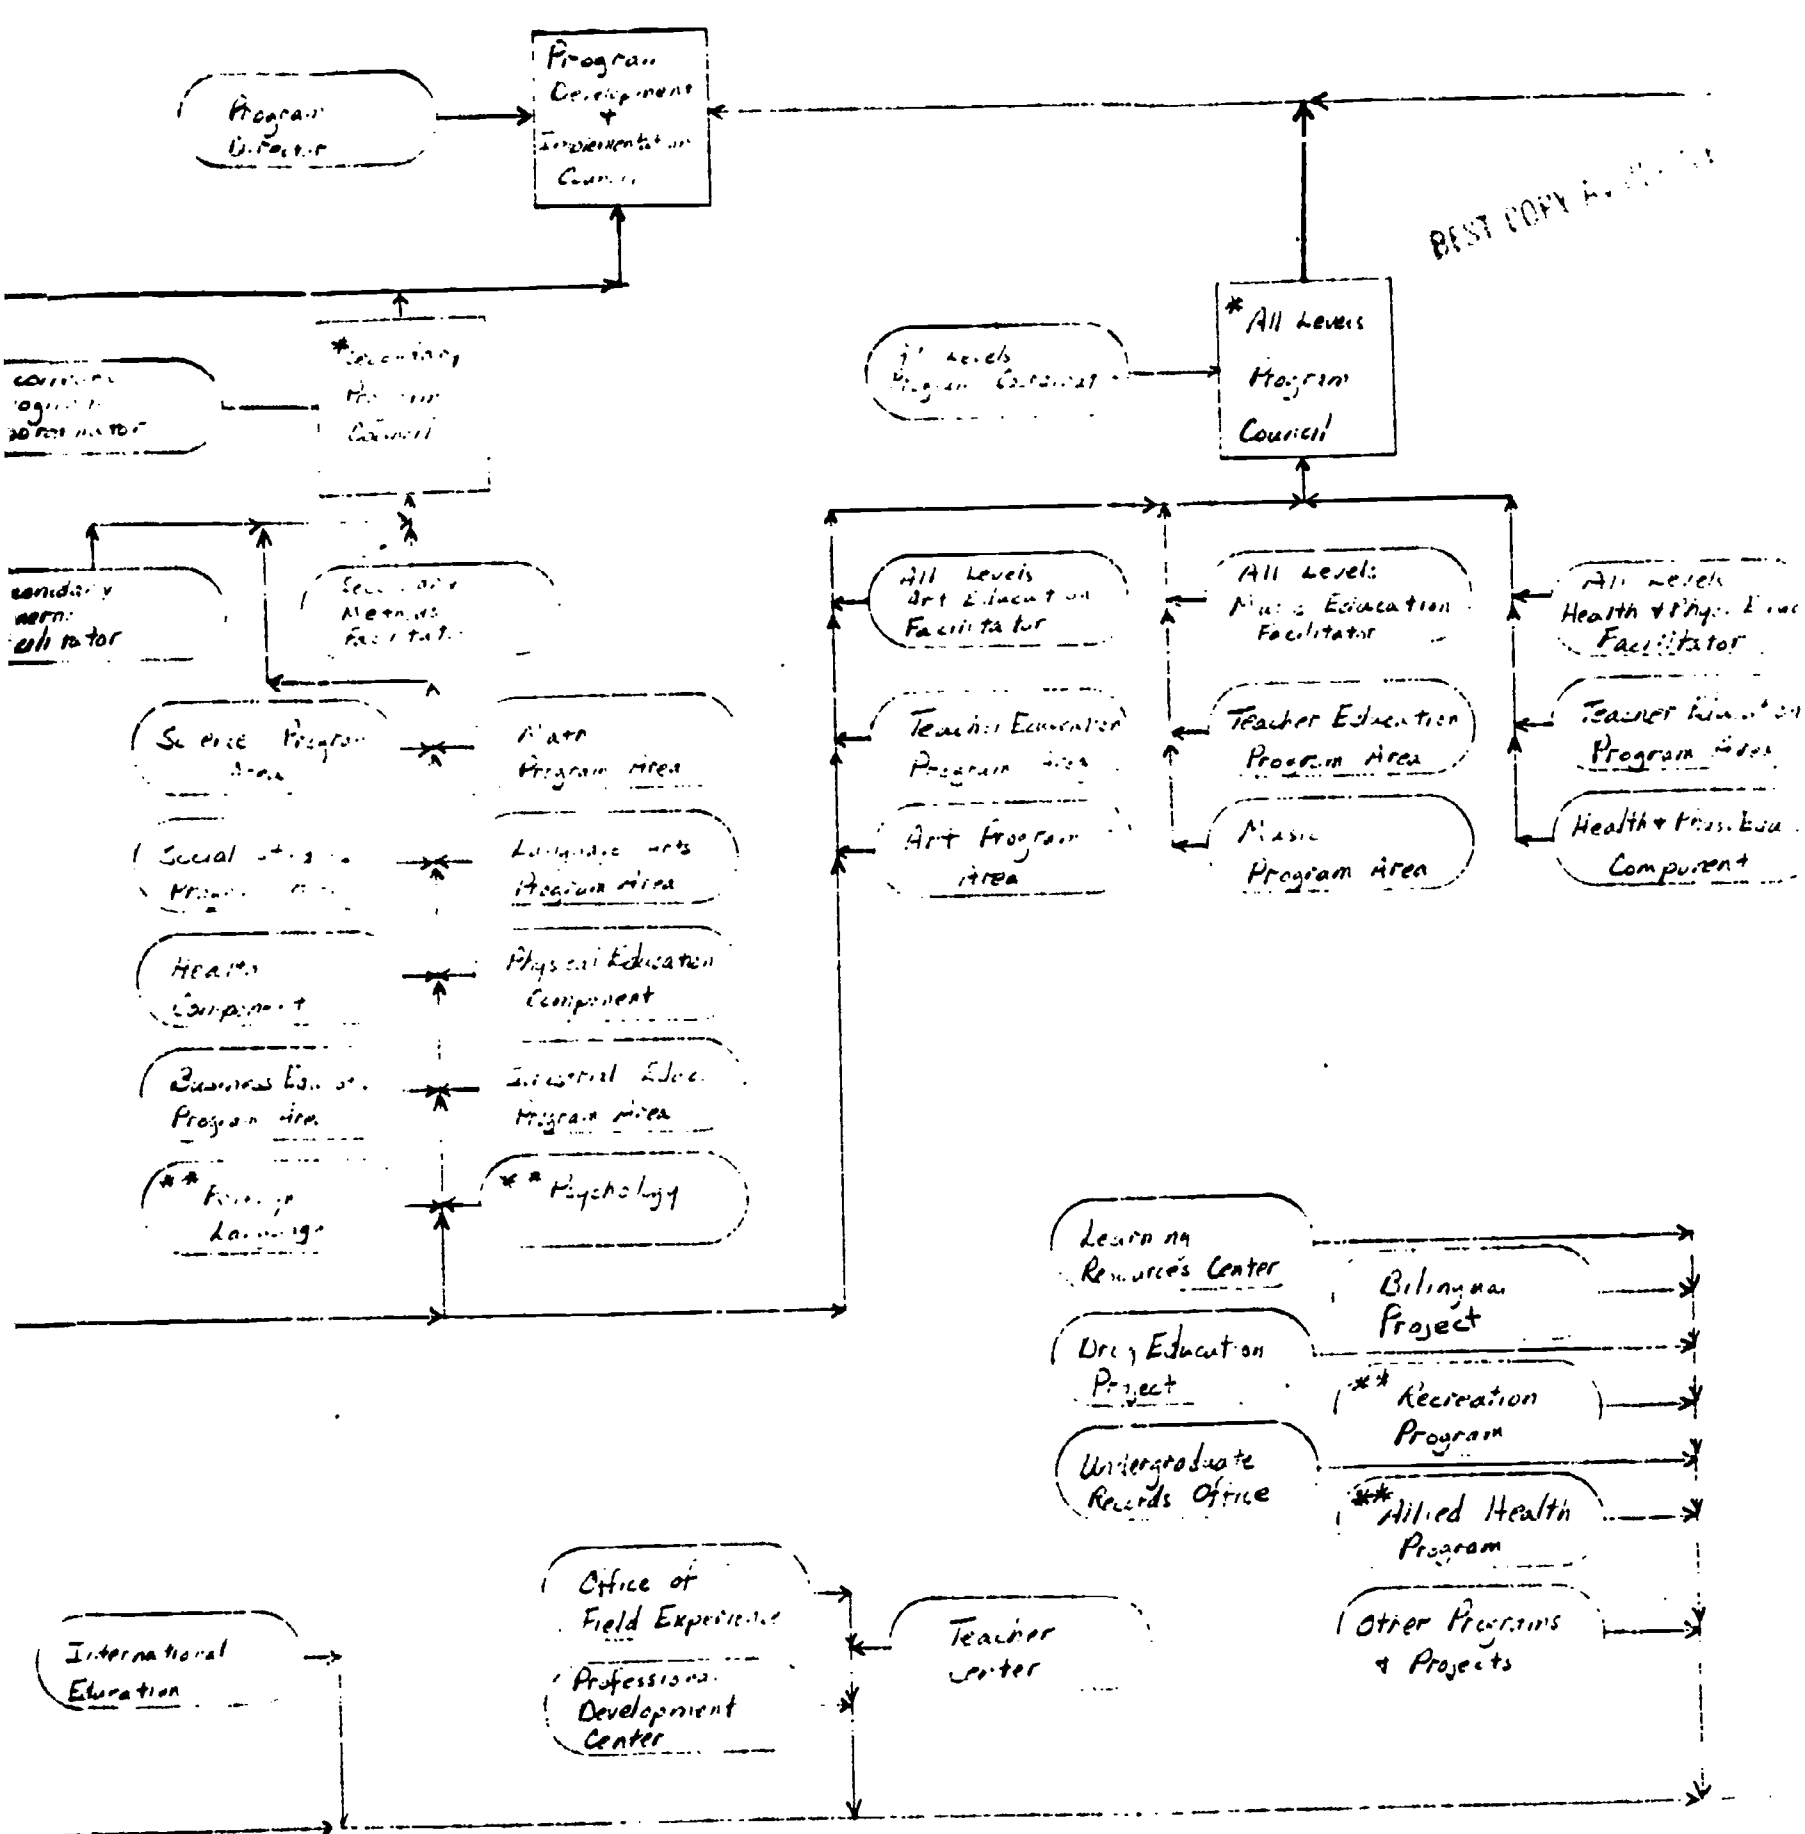 Program
Development
+
Implementation
Council
Program
Director
BEST COPY
* All Levels
Program
Council
Levels
Program
*Secondary
Program
Council
All Levels
Art Education
Facilitator
All Levels
Music Education
Facilitator
All Levels
Health + Phys. Educ
Facilitator
Secondary
Methods
Science Program
Area
Math
Program Area
Teacher Education
Program Area
Teacher Education
Program Area
Teacher Education
Program Area
Social
Language Arts
Program Area
Art Program
Area
Music
Program Area
Health + Phys. Edu
Component
Health
Component
Physical Education
Component
Business
Program Area
Industrial Educ.
Program Area
** Foreign
Language
** Psychology
Learning
Resources Center
Bilingual
Project
Drug Education
Project
** Recreation
Program
Undergraduate
Records Office
** Allied Health
Program
Office of
Field Experience
Teacher
Center
Other Programs
+ Projects
International
Education
Professional
Development
Center